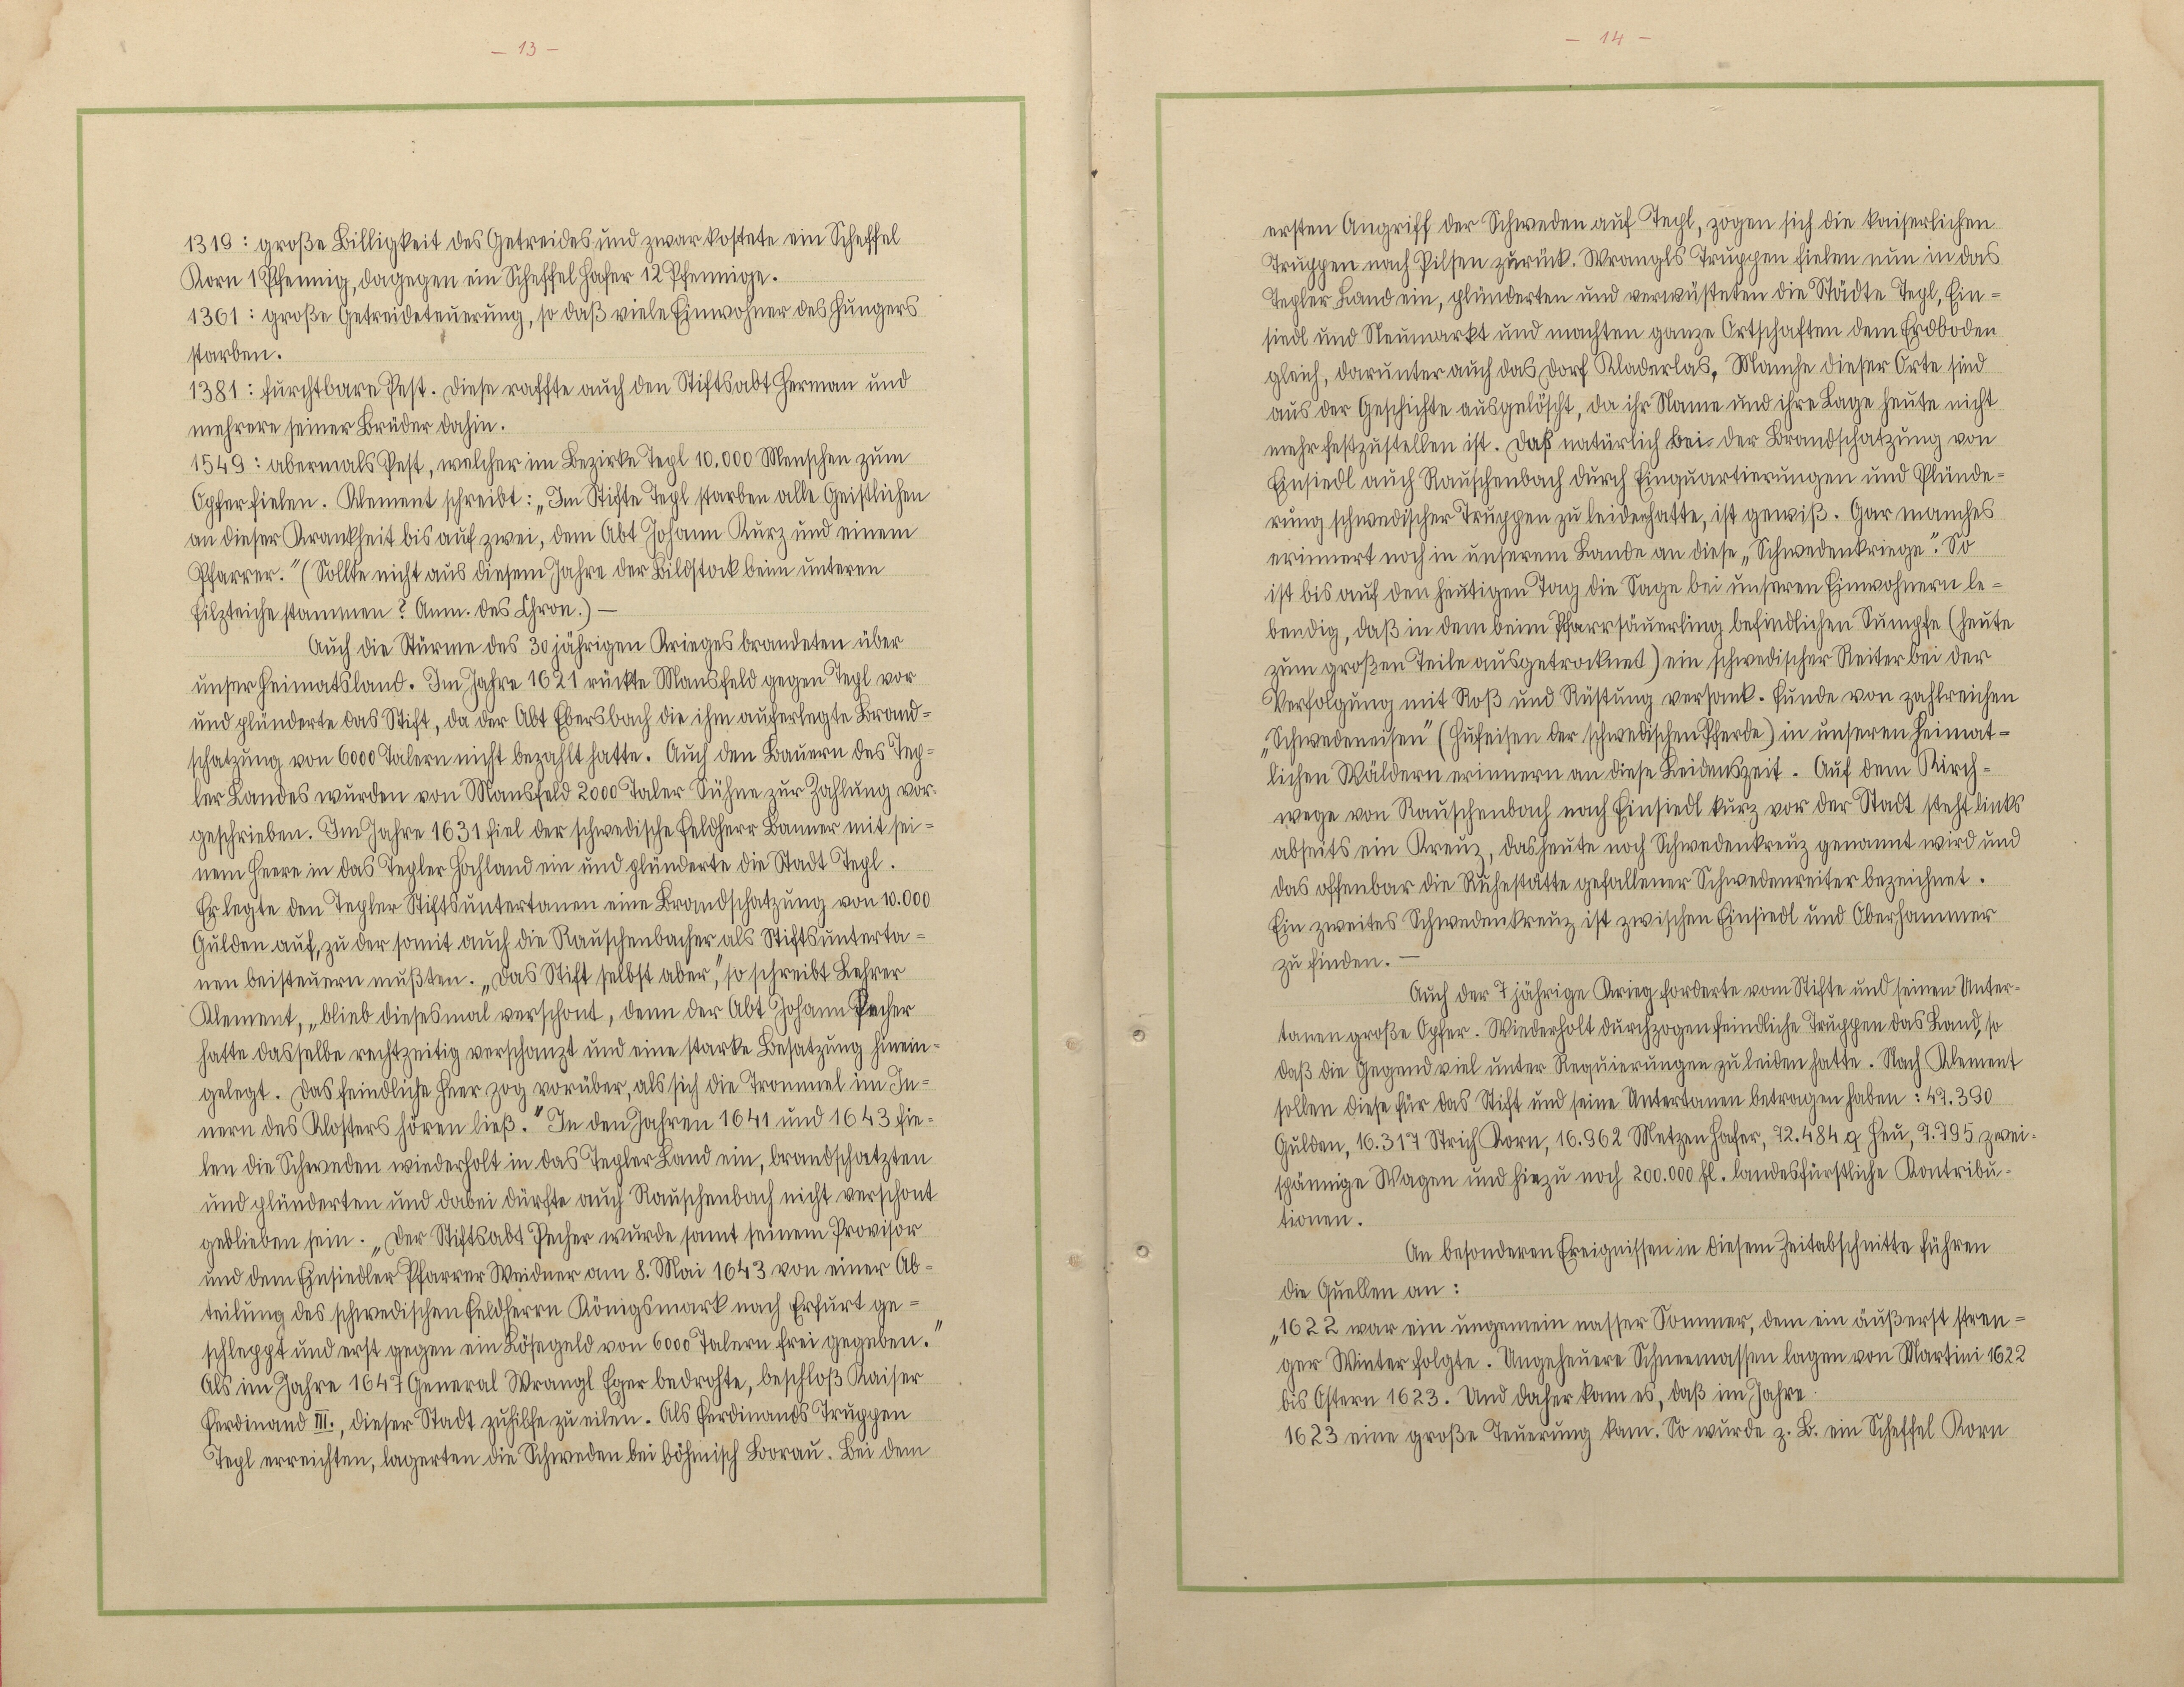 - 13 -
1319 : große Billigkeit des Getreides und zwar kostete ein Scheffel
Korn 1 Pfennig, dagegen ein Scheffel Hafer 12 Pfennige.
1361 : große Getreideteuerung, so daß viele Einwohner des Hungers
starben.
1381 : furchtbare Pest. Diese raffte auch den Stiftsabt Herman und
mehrere seiner Brüder dahin.
1549 : abermals Pest, welcher im Bezirke Tepl 10.000 Menschen zum
Opfer fielen. Klement schreibt: „Im Stifte Tepl starben alle Geistlichen
an dieser Krankheit bis auf zwei, dem Abt Johann Kurz und einem
Pfarrer." (Sollte nicht aus diesem Jahre der Bildstock beim unteren
Filzteiche stammen? Anm. des Chron.) —
Auch die Stürme des 30 jährigen Krieges brandeten über
unser Heimatsland. Im Jahre 1621 rückte Mansfeld gegen Tepl vor
und plünderte das Stift, da der Abt Ebersbach die ihm auferlegte Brand=
schatzung von 6000 Talern nicht bezahlt hatte. Auch den Bauern des Tep=
ler Landes wurden von Mansfeld 2000 Taler Sühne zur Zahlung vor-
geschrieben. Im Jahre 1631 fiel der schwedische Feldherr Banner mit sei=
nem Heere in das Tepler Hochland ein und plünderte die Stadt Tepl.
Er legte den Tepler Stiftsuntertanen eine Brandschatzung von 10.000
Gulden auf, zu der somit auch die Rauschenbacher als Stiftsunterta=
nen beisteuern mußten. „Das Stift selbst aber", so schreibt Lehrer
Klement, „blieb diesesmal verschont, denn der Abt Johann Pecher
hatte dasselbe rechtzeitig verschanzt und eine starke Besatzung hinein-
gelegt. Das feindliche Heer zog vorüber, als sich die Trommel im In=
nern des Klosters hören ließ." In den Jahren 1641 und 1643 fie-
len die Schweden wiederholt in das Tepler Land ein, brandschatzten
und plünderten und dabei dürfte auch Rauschenbach nicht verschont
geblieben sein. „Der Stiftsabt Pecher wurde samt seinem Provisor
und dem Einsiedler Pfarrer Weidner am 8. Mai 1643 von einer Ab=
teilung des schwedischen Feldherrn Königsmark nach Erfurt ge=
schleppt und erst gegen ein Lösegeld von 6000 Talern frei gegeben."
Als im Jahre 1647 General Wrangl Eger bedrohte, beschloß Kaiser
Ferdinand III., dieser Stadt zuhilfe zu eilen. Als Ferdinands Truppen
Tepl erreichten, lagerten die Schweden bei böhmisch Borau. Bei dem
- 14 -
ersten Angriff der Schweden auf Tepl, zogen sich die kaiserlichen
Truppen nach Pilsen zurück. Wrangls Truppen fielen nun in das
Tepler Land ein, plünderten und verwüsteten die Städte Tepl, Ein=
siedl und Neumarkt und machten ganze Ortschaften dem Erdboden
gleich, darunter auch das Dorf Kladerlas. Manche dieser Orte sind
aus der Geschichte ausgelöscht, da ihr Name und ihre Lage heute nicht
mehr festzustellen ist. Daß natürlich bei der Brandschatzung von
Einsiedl auch Rauschenbach durch Einquartierungen und Plünde=
rung schwedischer Truppen zu leiden hatte, ist gewiß. Gar manches
erinnert noch in unserem Lande an diese „Schwedenkriege". So
ist bis auf den heutigen Tag die Sage bei unseren Einwohnern le=
bendig, daß in dem beim Pfarrsäuerling befindlichen Sumpfe (heute
zum großen Teile ausgetrocknet) ein schwedischer Reiter bei der
Verfolgung mit Roß und Rüstung versank. Funde von zahlreichen
„Schwedeneisen" (Hufeisen der schwedischen Pferde) in unseren heimat=
lichen Wäldern erinnern an diese Leidenszeit. Auf dem Kirch=
wege von Rauschenbach nach Einsiedl kurz vor der Stadt steht links
abseits ein Kreuz, das heute noch Schwedenkreuz genannt wird und
das offenbar die Ruhestätte gefallener Schwedenreiter bezeichnet.
Ein zweites Schwedenkreuz ist zwischen Einsiedl und Oberhammer
zu finden. —
Auch der 7 jährige Krieg forderte vom Stifte und seinen Unter-
tanen große Opfer. Wiederholt durchzogen feindliche Truppen das Land, so
daß die Gegend viel unter Requierungen zu leiden hatte. Nach Klement
sollen diese für das Stift und seine Untertanen betragen haben : 47.390
Gulden, 16.317 Strich Korn, 16.962 Metzen Hafer, 72.484 q Heu, 7.795 zwei-
spännige Wagen und hiezu noch 200.000 fl. landesfürstliche Kontribu-
tionen.
An besonderen Ereignissen in diesem Zeitabschnitte führen
die Quellen an :
„1622 war ein ungemein nasser Sommer, dem ein äußerst stren=
ger Winter folgte. Ungeheuere Schneemassen lagen von Martini 1622
bis Ostern 1623. Und daher kam es, daß im Jahre
1623 eine große Teuerung kam. So wurde z. B. ein Scheffel Korn